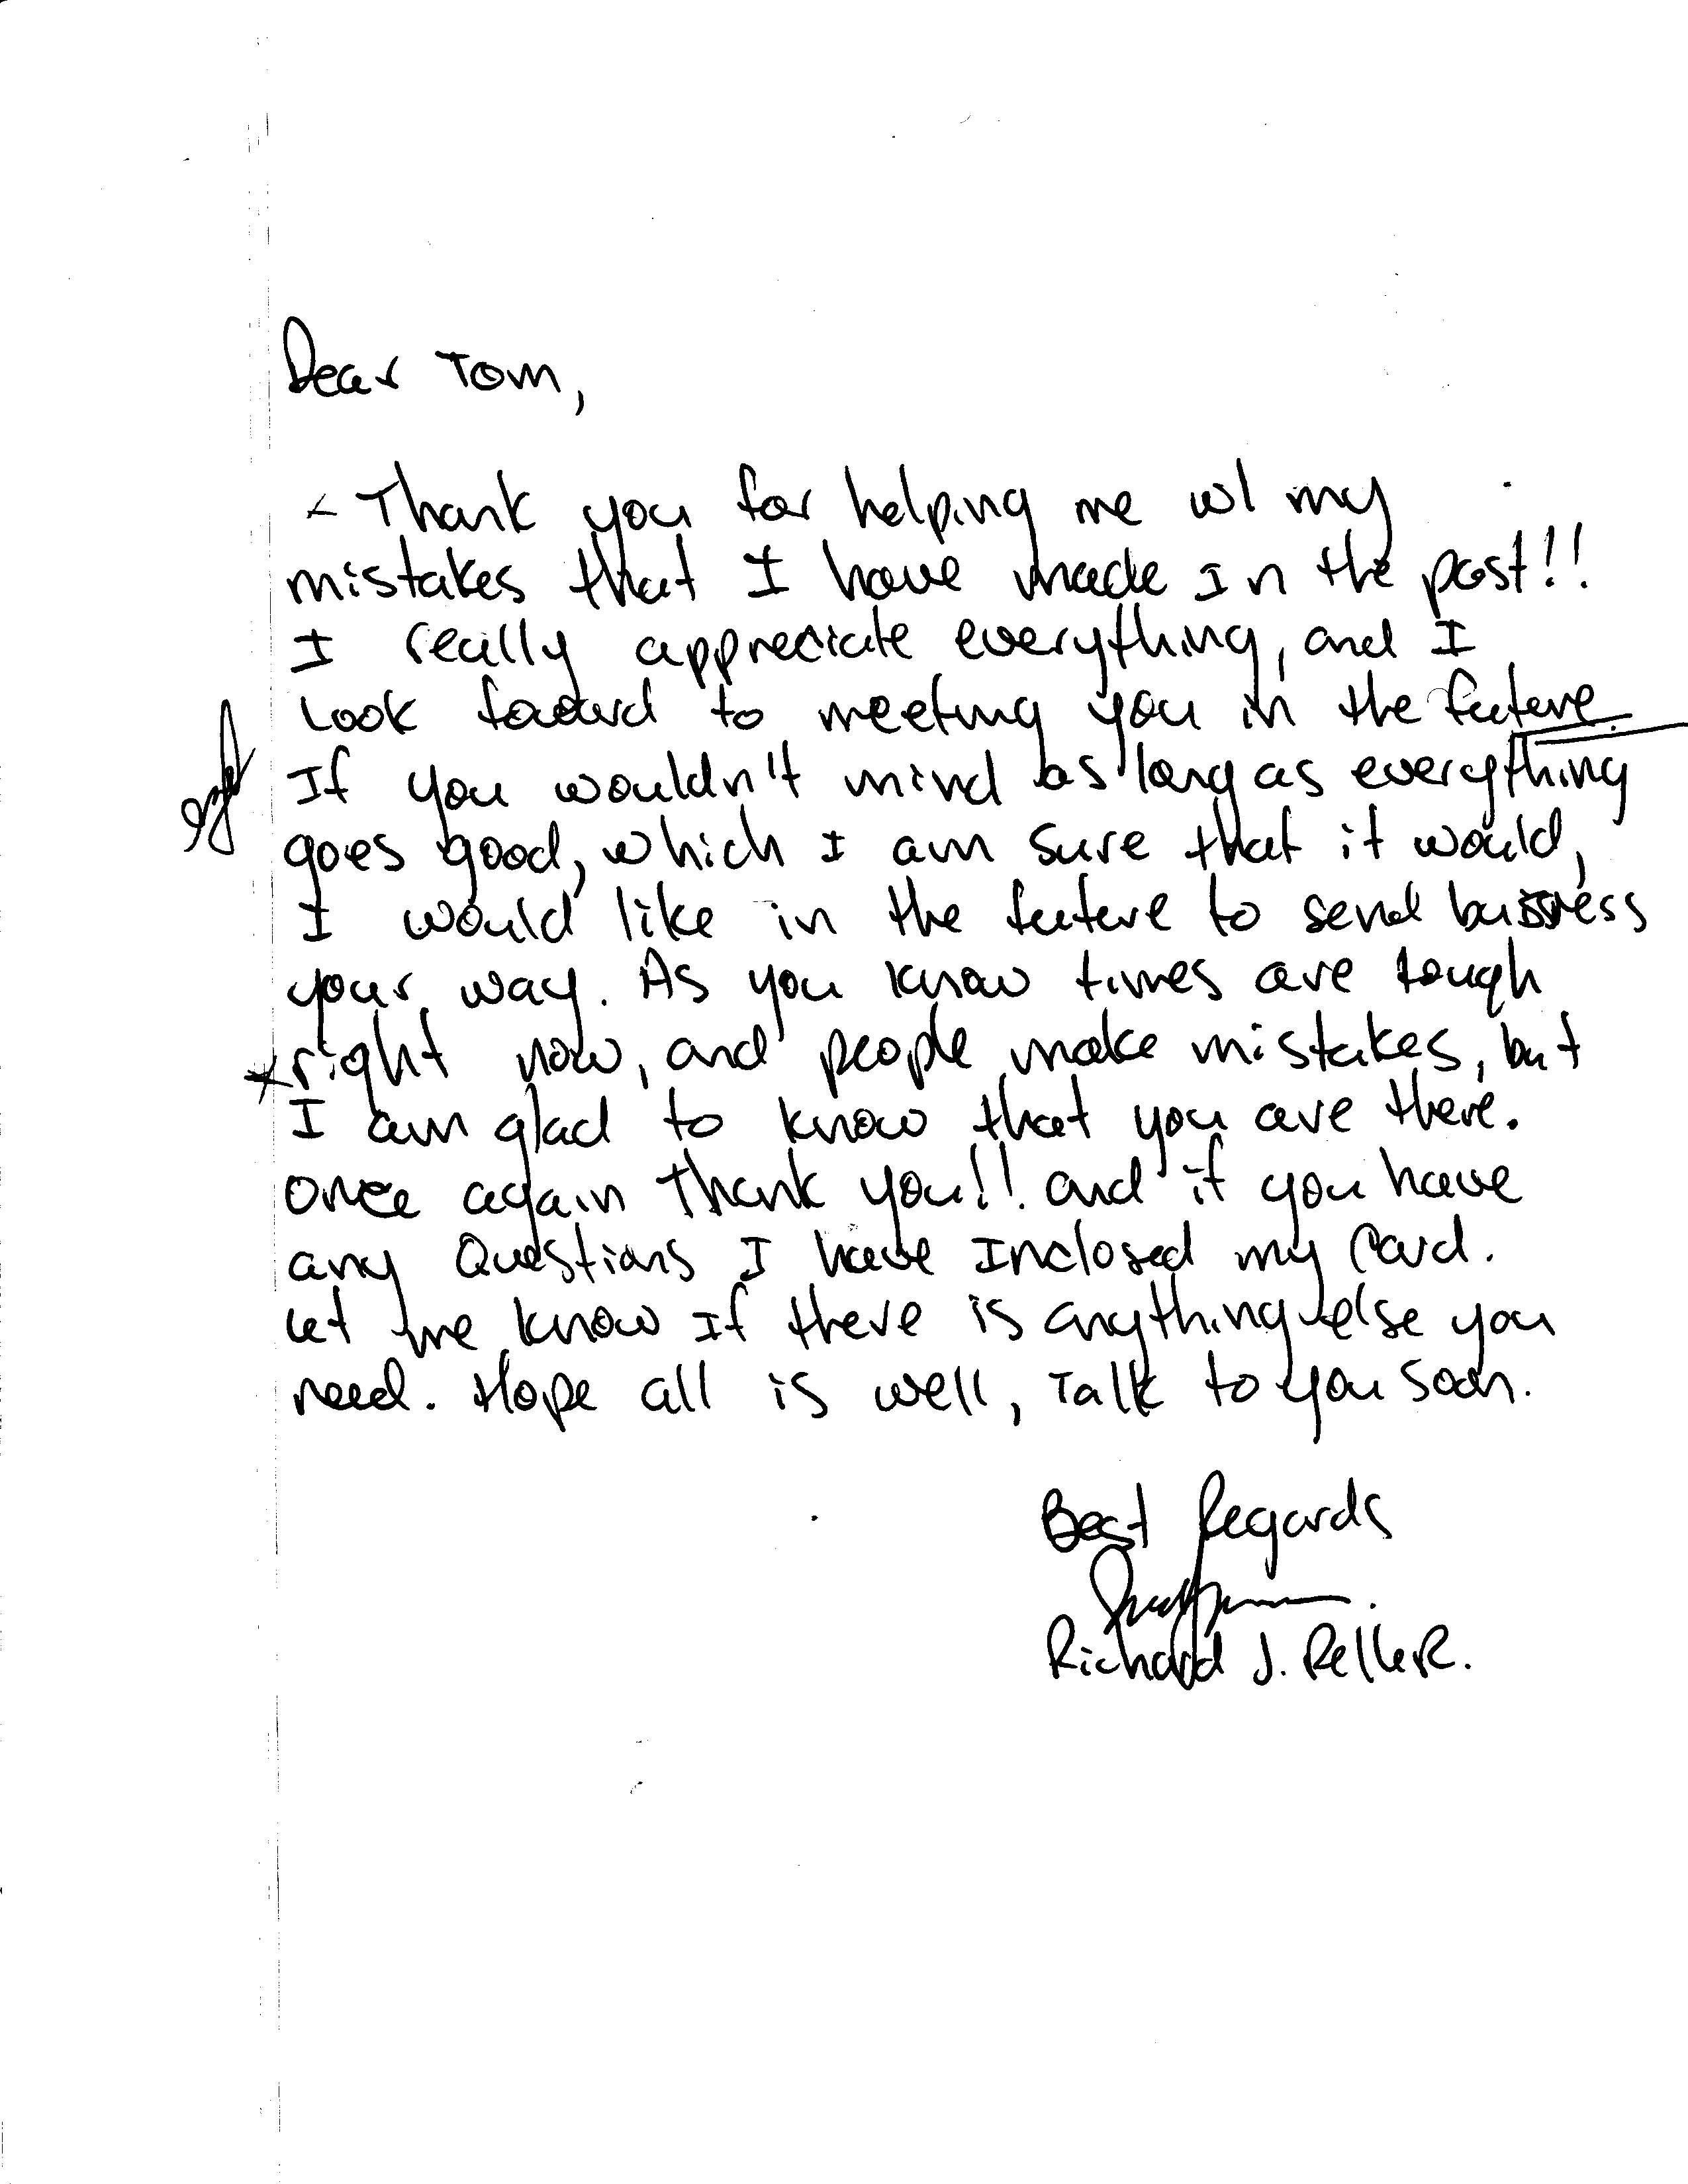 Dear Tom,
Thank you for helping me w/ my
mistakes that I have made In the past!!
I really appreciate everything, and I
Look foward to meeting you in the future.
If you wouldn't mind as long as everything
goes good, which I am sure that it would,
I would like in the future to send business
your way. As you know times are tough
right now, and people make mistakes, but
I am glad to know that you are there.
Once again Thank you!! and if you have
any Questions I have Inclosed my Card.
Let me know If there is anything else you
need. Hope all is well, Talk to you soon.
Best Regards
Richard J.